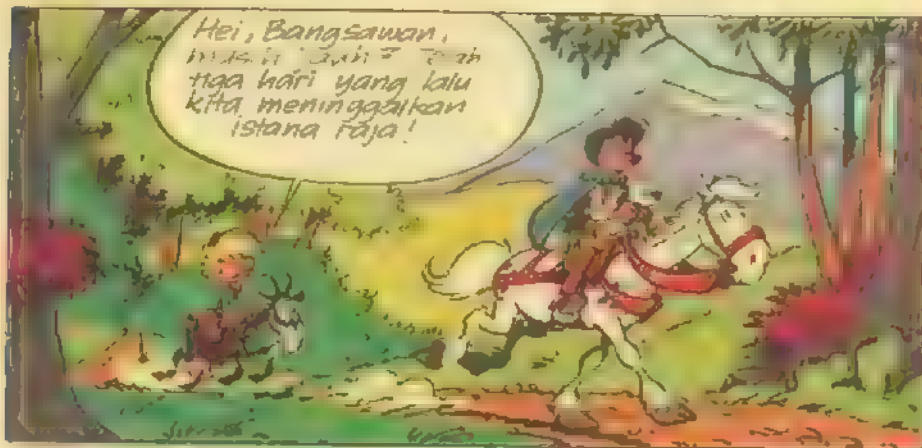 Hei, Bangsawan,
masih jauh?
tiga hari yang lalu
kita meninggalkan
istana raja!